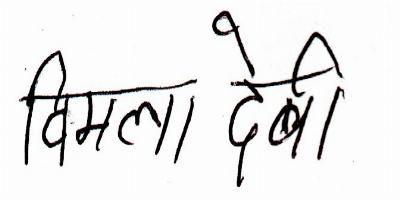 विमला देवी